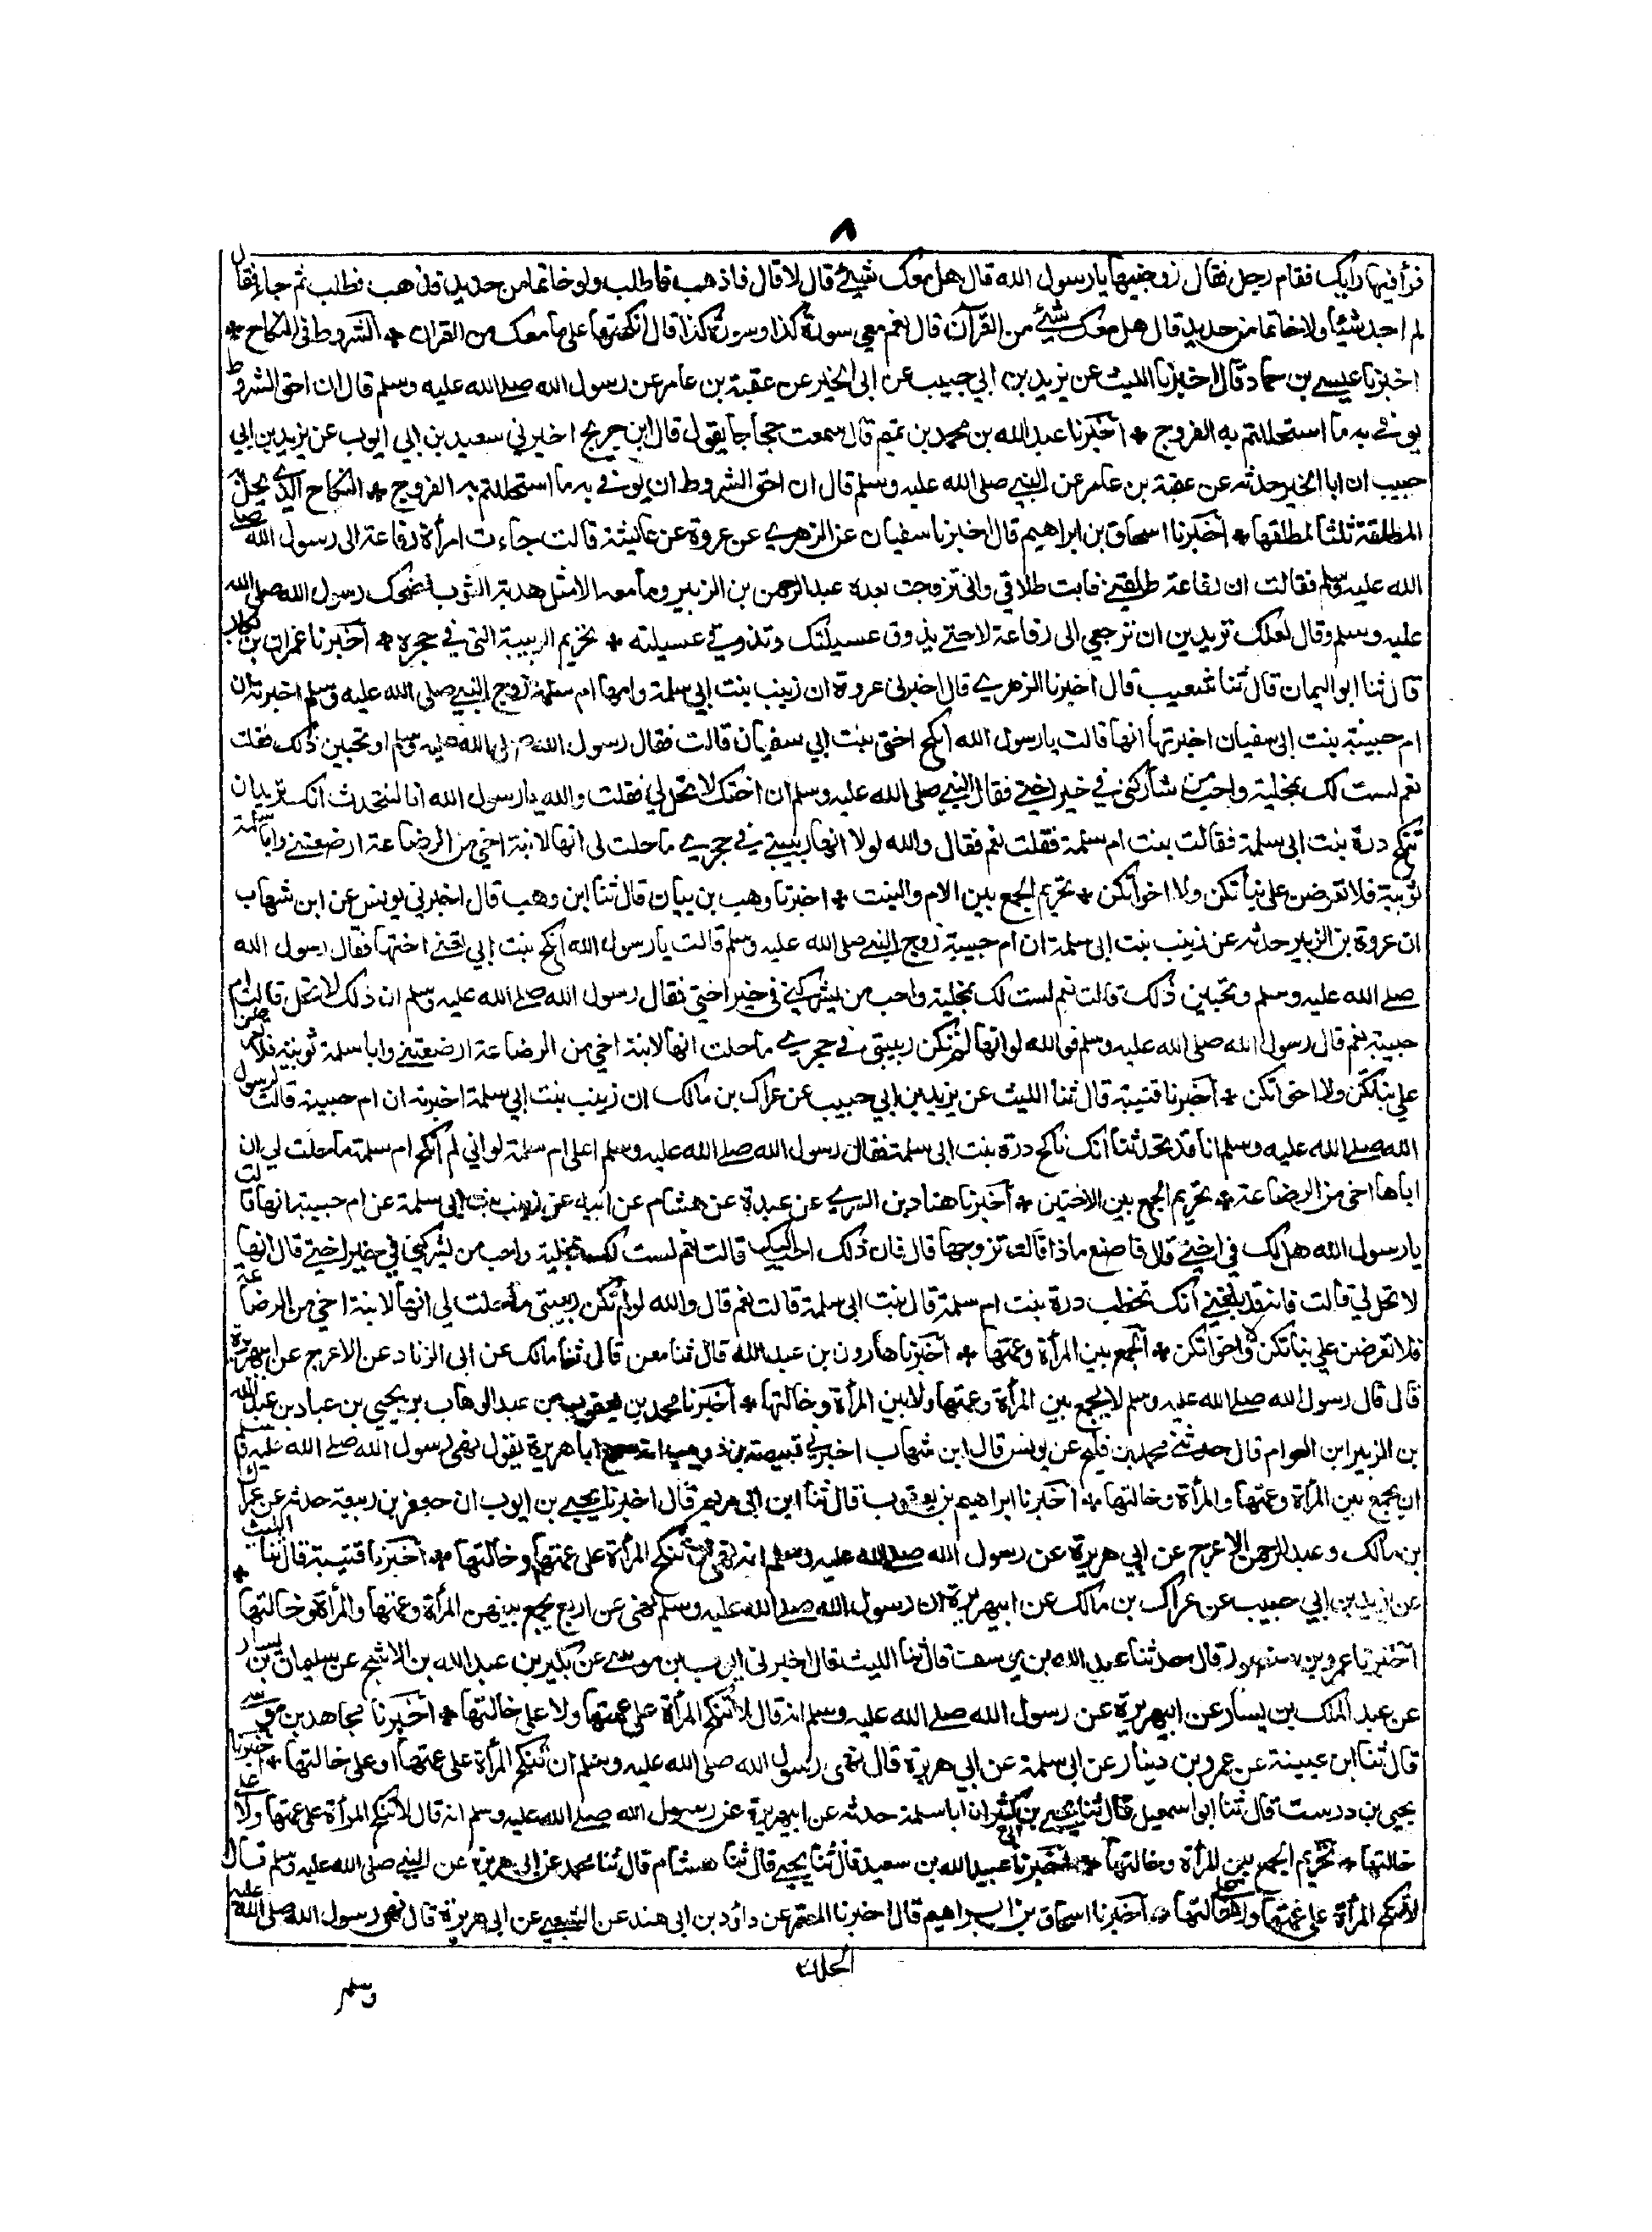 ٨
فرأ فيها رايك فقام رجل فقال زوجنيها يا رسول الله قال هل معك شيئ قال لا قال فاذهب فاطلب ولو خاتما من حديد فذهب فطلب ثم جاء فقال
لم اجد شيئا ولا خاتما من حديد قال هل معك شيئ من القرآن قال نعم معي سورة كذا وسورة كذا قال انكحتها على ما معك من القران * الشروط في النكاح *
اخبرنا عيسى بن حماد قال اخبرنا الليث عن يزيد بن ابي حبيب عن ابي الخير عن عقبة بن عامر عن رسول الله صلى الله عليه وسلم قال ان احق الشروط
يوفى به ما استحللتم به الفروج * اخبرنا عبد الله بن محمد بن تميم قال سمعت حجاجا يقول قال ابن جريج اخبرني سعيد بن ابي ايوب عن يزيد بن ابي
حبيب ان ابا الخير حدثه عن عقبة بن عامر عن النبي صلى الله عليه وسلم قال ان احق الشروط ان يوفى به ما استحللتم به الفروج * النكاح الذي يحل به
المطلقة ثلثا لمطلقها * اخبرنا اسحاق بن ابراهيم قال اخبرنا سفيان عن الزهري عن عروة عن عايشة قالت جاءت امرأة رفاعة الى رسول الله صلى
الله عليه وسلم فقالت ان رفاعة طلقني فابت طلاقي واني تزوجت بعده عبد الرحمن بن الزبير وما معه الا مثل هدبة الثوب فضحك رسول الله صلى الله
عليه وسلم وقال لعلك تريدين ان ترجعي الى رفاعة لا حتى يذوق عسيلتك وتذوقي عسيلته * تحريم الربيبة التي في حجره * اخبرنا عمران بن بكار
قال ثنا ابو اليمان قال ثنا شعيب قال اخبرنا الزهري قال اخبرني عروة ان زينب بنت ابي سلمة وامها ام سلمة زوج النبي صلى الله عليه وسلم اخبرته ان
ام حبيبة بنت ابي سفيان اخبرتها انها قالت يا رسول الله انكح اختي بنت ابي سفيان قالت فقال رسول الله صلى الله عليه وسلم او تحبين ذلك فقلت
نعم لست لك بمخلية واحب من شاركني في خير اختي فقال النبي صلى الله عليه وسلم ان اختك لا تحل لي فقلت والله يا رسول الله انا لنتحدث انك تريد ان
تنكح درة بنت ابي سلمة فقالت بنت ام سلمة فقلت نعم فقال والله لولا انها ربيبتي في حجري ما حلت لي انها لابنة اخي من الرضاعة ارضعتني وابا سلمة
ثويبة فلا تعرضن علي بناتكن ولا اخواتكن * تحريم الجمع بين الام والبنت * اخبرنا وهب بن بيان قال ثنا ابن وهب قال اخبرني يونس عن ابن شهاب
ان عروة بن الزبير حدثه عن زينب بنت ابي سلمة ان ام حبيبة زوج النبي صلى الله عليه وسلم قالت يا رسول الله انكح بنت ابي تعني اختها فقال رسول الله
صلى الله عليه وسلم وتحبين ذلك قالت نعم لست لك بمخلية واحب من يشركني في خير اختي فقال رسول الله صلى الله عليه وسلم ان ذلك لا تحل قالت ام
حبيبة نعم قال رسول الله صلى الله عليه وسلم فوالله لو انها لم تكن ربيبتي في حجري ما حلت انها لابنة اخي من الرضاعة ارضعتني وابا سلمة ثويبة فلا تعرضن
علي بناتكن ولا اخواتكن * اخبرنا قتيبة قال ثنا الليث عن يزيد بن ابي حبيب عن عراك بن مالك ان زينب بنت ابي سلمة اخبرته ان ام حبيبة قالت لرسول
الله صلى الله عليه وسلم انا قد تحدثنا انك ناكح درة بنت ابي سلمة فقال رسول الله صلى الله عليه وسلم اعلى ام سلمة لو اني لم انكح ام سلمة ما حلت لي ان
اباها اخي من الرضاعة * تحريم الجمع بين الاختين * اخبرنا هناد بن السري عن عبدة عن هشام عن ابيه عن زينب بنت ابي سلمة عن ام حبيبة انها قالت
يا رسول الله هل لك في اختي قال فاصنع ماذا قالت تزوجها قال فان ذلك احب اليك قالت نعم لست لك بمخلية واحب من يشركني في خير اختي قال انها
لا تحل لي قالت فانه قد بلغني انك تخطب درة بنت ام سلمة قال بنت ابي سلمة قالت نعم قال والله لو لم تكن ربيبتي ما حلت لي انها لابنة اخي من الرضاعة
فلا تعرضن علي بناتكن ولا اخواتكن * الجمع بين المرأة وعمتها * اخبرنا هارون بن عبد الله قال ثنا معن قال ثنا مالك عن ابي الزناد عن الاعرج عن ابيهريرة
قال قال رسول الله صلى الله عليه وسلم لا يجمع بين المرأة وعمتها ولا بين المرأة وخالتها * اخبرنا محمد بن يعقوب بن عبد الوهاب بن يحيى بن عباد بن عبد الله
بن الزبير ابن العوام قال حدثني محمد بن فليح عن يونس قال ابن شهاب اخبرني قبيصة بن ذويب انه سمع ابا هريرة يقول نهى رسول الله صلى الله عليه وسلم
ان يجمع بين المرأة وعمتها والمرأة وخالتها * اخبرنا ابراهيم بن يعقوب قال ثنا ابن ابي مريم قال اخبرنا يحيى بن ايوب ان جعفر بن ربيعة حدثه عن عراك
بن مالك وعبد الرحمن الاعرج عن ابي هريرة عن رسول الله صلى الله عليه وسلم انه نهى ان تنكح المرأة على عمتها وخالتها * اخبرنا قتيبة قال ثنا الليث
عن يزيد بن ابي حبيب عن عراك بن مالك عن ابيهريرة ان رسول الله صلى الله عليه وسلم نهى عن اربع يجمع بينهن المرأة وعمتها والمرأة وخالتها *
اخبرنا عمرو بن منصور قال حدثنا عبد الله بن يوسف قال ثنا الليث قال اخبرني ايوب بن موسى عن بكير بن عبد الله بن الاشج عن سليمان بن يسار
عن عبد الملك بن يسار عن ابيهريرة عن رسول الله صلى الله عليه وسلم انه قال لا تنكح المرأة على عمتها ولا على خالتها * اخبرنا مجاهد بن موسى
قال ثنا ابن عيينة عن عمرو بن دينار عن ابي سلمة عن ابي هريرة قال نهى رسول الله صلى الله عليه وسلم ان تنكح المرأة على عمتها او على خالتها * اخبرنا
يحيى بن درست قال ثنا ابو اسمعيل قال ثنا يحيى بن ابي كثير ان ابا سلمة حدثه عن ابيهريرة عن رسول الله صلى الله عليه وسلم انه قال لا تنكح المرأة على عمتها ولا على
خالتها * تحريم الجمع بين المرأة وخالتها * اخبرنا عبيد الله بن سعيد قال ثنا يحيى قال ثنا هشام قال ثنا محمد عن ابي هريرة عن النبي صلى الله عليه وسلم قال
لا تنكح المرأة على عمتها ولا على خالتها * اخبرنا اسحاق بن ابراهيم قال اخبرنا المعتمر عن داود بن ابي هند عن الشعبي عن ابي هريرة قال نهى رسول الله صلى الله عليه
وسلم